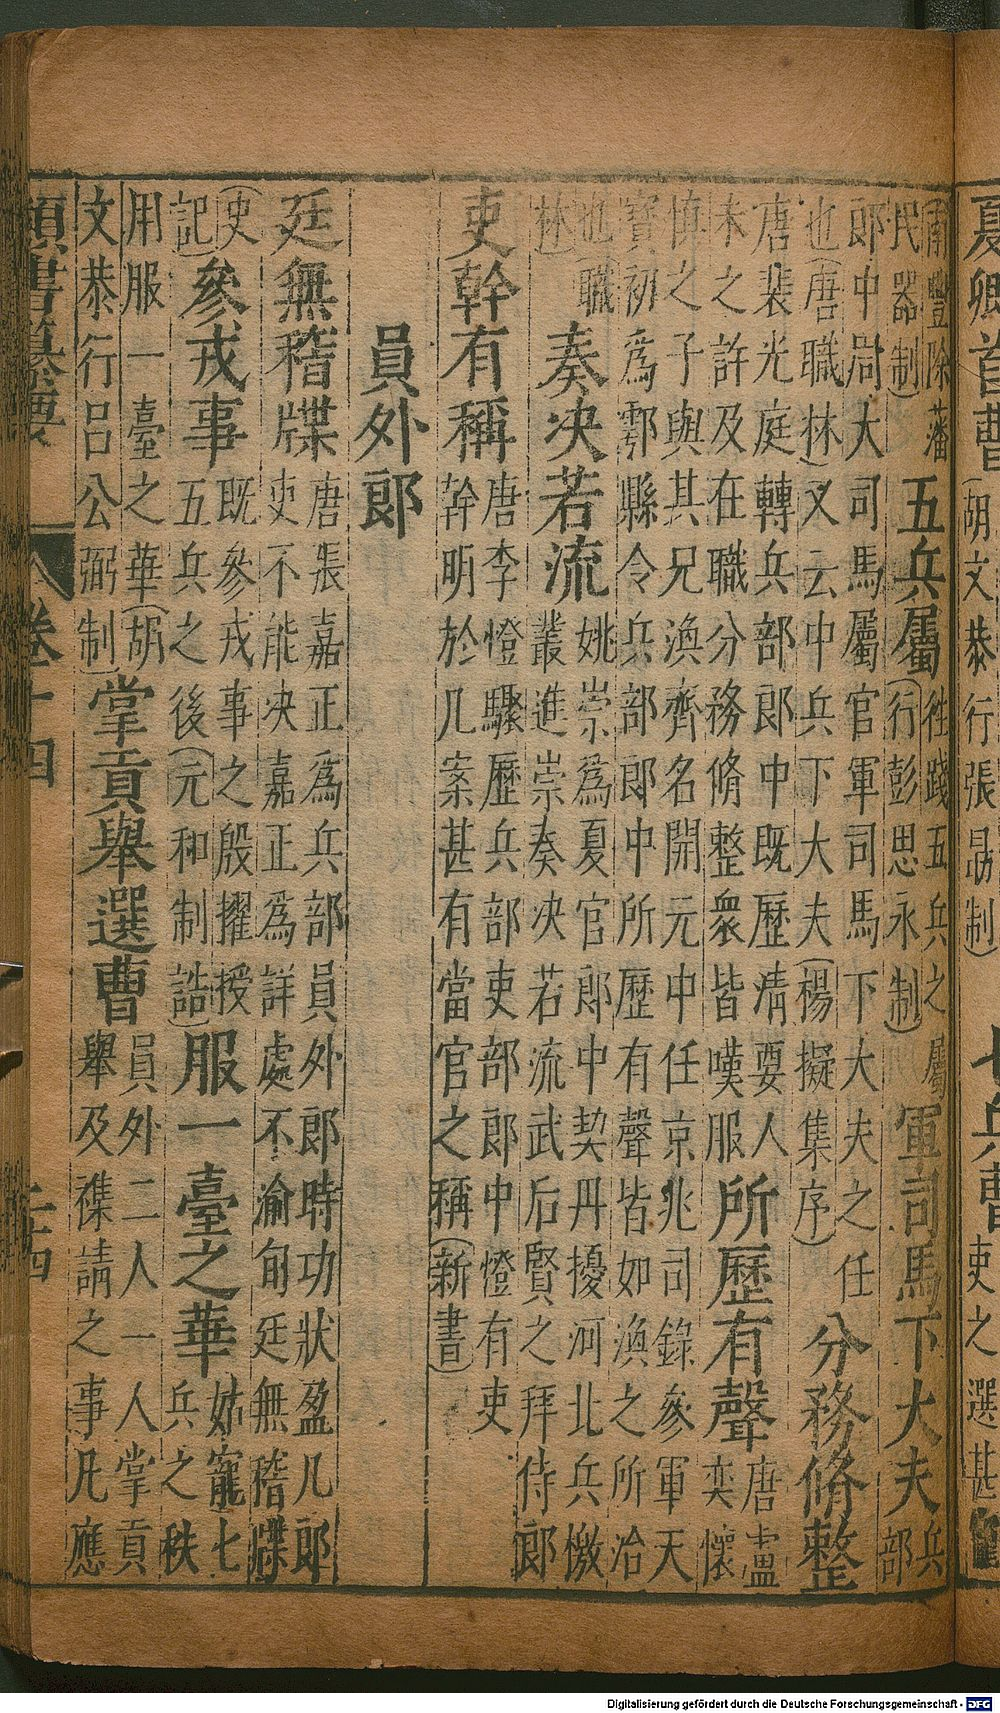 夏卿首曹(胡文恭行張昷制)七兵曹吏之選甚
南豐除潘
民器制)五兵屬徃踐五兵之屬
(行彭思永制)軍司馬下大夫兵
部
郎中尉大司馬屬官軍司馬下大夫之任
也(唐職林)又云中兵下大夫(楊擬集序)分務脩整
唐裴光庭轉兵部郎中既歷清要人
未之許及在職分務脩整衆皆嘆服所歷有聲唐盧
奕懷
慎之子與其兄渙齊名開元中任京兆司錄參軍天
寶初爲鄠縣令兵部郎中所歷有聲皆如渙之所治
也(職
林)奏决若流姚崇爲夏官郎中契丹擾河北兵檄
叢進崇奏决若流武后賢之拜侍郎
吏幹有稱唐李憕驟歷兵部吏部郎中憕有吏
幹明於几案甚有當官之稱(新書)
員外郎
廷無稽牒唐張嘉正爲兵部員外郎時功狀盈几郎
吏不能决嘉正爲詳處不渝旬廷無稽牒
(史
記)參戎事既參戎事之殷擢授
五兵之後(元和制誥)服一臺之華姑寵七
兵之秩
用服一臺之華(胡
文恭行呂公弼制)掌貢舉選曹員外二人一人掌貢
舉及襍請之事凡應
類書纂要 卷十四
Digitalisierung gefördert durch die Deutsche Forschungsgemeinschaft - DFG